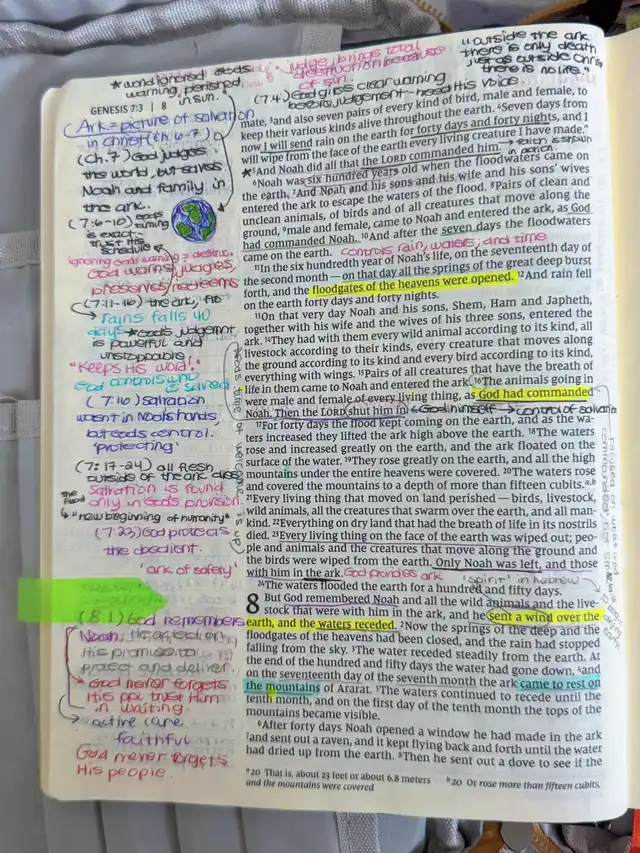 "outside the ark
there is only death
just as outside Christ
there is no life."
judge, brings total
destruction because
of sin.
* world ignored Gods
warning, perished
in sun.
(7:4) God gives clear warning
before judgement - heed His voice.
GENESIS 7:3 | 8
(Ark = picture of salvation
in Christ (ch. 6-7)
(Ch. 7) God judges
the world, but saves
Noah and family in
the ark.
(7:6-10) Gods
timing
is exact -
trust His
schedule
ignoring Gods warning = destruc.
God warns, judges,
preserves/redeems
(7:11-16) the ark,
rains falls 40
days * Gods judgemnt
is powerful and
unstoppable!
"Keeps His word!"
God controls who
is saved
(7:16) salvation
wasn't in Noahs hands,
but Gods control.
'protecting'
(7:17-24) all flesh
outside of the ark dies
The flood
salvation is found
only in Gods provision
"new beginning of humanity"
(7:23) God protects
the obedient.
'ark of safety'
(8:1) God remembers
Noah,
His promise to
protect and deliver.
God never forgets
His ppl, trust Him
in waiting.
active care
faithful
God never forgets
His people.
mate, ³and also seven pairs of every kind of bird, male and female, to
keep their various kinds alive throughout the earth. ⁴Seven days from
now I will send rain on the earth for forty days and forty nights, and I
will wipe from the face of the earth every living creature I have made."
⁵And Noah did all that the LORD commanded him. → faith is shown
in action.
⁶Noah was six hundred years old when the floodwaters came on
the earth. ⁷And Noah and his sons and his wife and his sons' wives
entered the ark to escape the waters of the flood. ⁸Pairs of clean and
unclean animals, of birds and of all creatures that move along the
ground, ⁹male and female, came to Noah and entered the ark, as God
had commanded Noah. ¹⁰And after the seven days the floodwaters
came on the earth. controls rain, waters, and time
¹¹In the six hundredth year of Noah's life, on the seventeenth day of
the second month — on that day all the springs of the great deep burst
forth, and the floodgates of the heavens were opened. ¹²And rain fell
on the earth forty days and forty nights.
¹³On that very day Noah and his sons, Shem, Ham and Japheth,
together with his wife and the wives of his three sons, entered the
ark. ¹⁴They had with them every wild animal according to its kind, all
livestock according to their kinds, every creature that moves along
the ground according to its kind and every bird according to its kind,
everything with wings. ¹⁵Pairs of all creatures that have the breath of
life in them came to Noah and entered the ark. ¹⁶The animals going in
were male and female of every living thing, as God had commanded
Noah. Then the LORD shut him in. ← God himself → control of salvation
¹⁷For forty days the flood kept coming on the earth, and as the wa-
ters increased they lifted the ark high above the earth. ¹⁸The waters
rose and increased greatly on the earth, and the ark floated on the
surface of the water. ¹⁹They rose greatly on the earth, and all the high
mountains under the entire heavens were covered. ²⁰The waters rose
and covered the mountains to a depth of more than fifteen cubits.ᵃ,ᵇ
²¹Every living thing that moved on land perished — birds, livestock,
wild animals, all the creatures that swarm over the earth, and all man-
kind. ²²Everything on dry land that had the breath of life in its nostrils
died. ²³Every living thing on the face of the earth was wiped out; peo-
ple and animals and the creatures that move along the ground and
the birds were wiped from the earth. Only Noah was left, and those
with him in the ark. God provides ark 'spirit' in hebrew
²⁴The waters flooded the earth for a hundred and fifty days.
8 But God remembered Noah and all the wild animals and the live-
stock that were with him in the ark, and he sent a wind over the
earth, and the waters receded. ²Now the springs of the deep and the
floodgates of the heavens had been closed, and the rain had stopped
falling from the sky. ³The water receded steadily from the earth. At
the end of the hundred and fifty days the water had gone down, ⁴and
on the seventeenth day of the seventh month the ark came to rest on
the mountains of Ararat. ⁵The waters continued to recede until the
tenth month, and on the first day of the tenth month the tops of the
mountains became visible.
⁶After forty days Noah opened a window he had made in the ark
⁷and sent out a raven, and it kept flying back and forth until the water
had dried up from the earth. ⁸Then he sent out a dove to see if the
ᵃ 20 That is, about 23 feet or about 6.8 meters
ᵇ 20 Or rose more than fifteen cubits,
and the mountains were covered